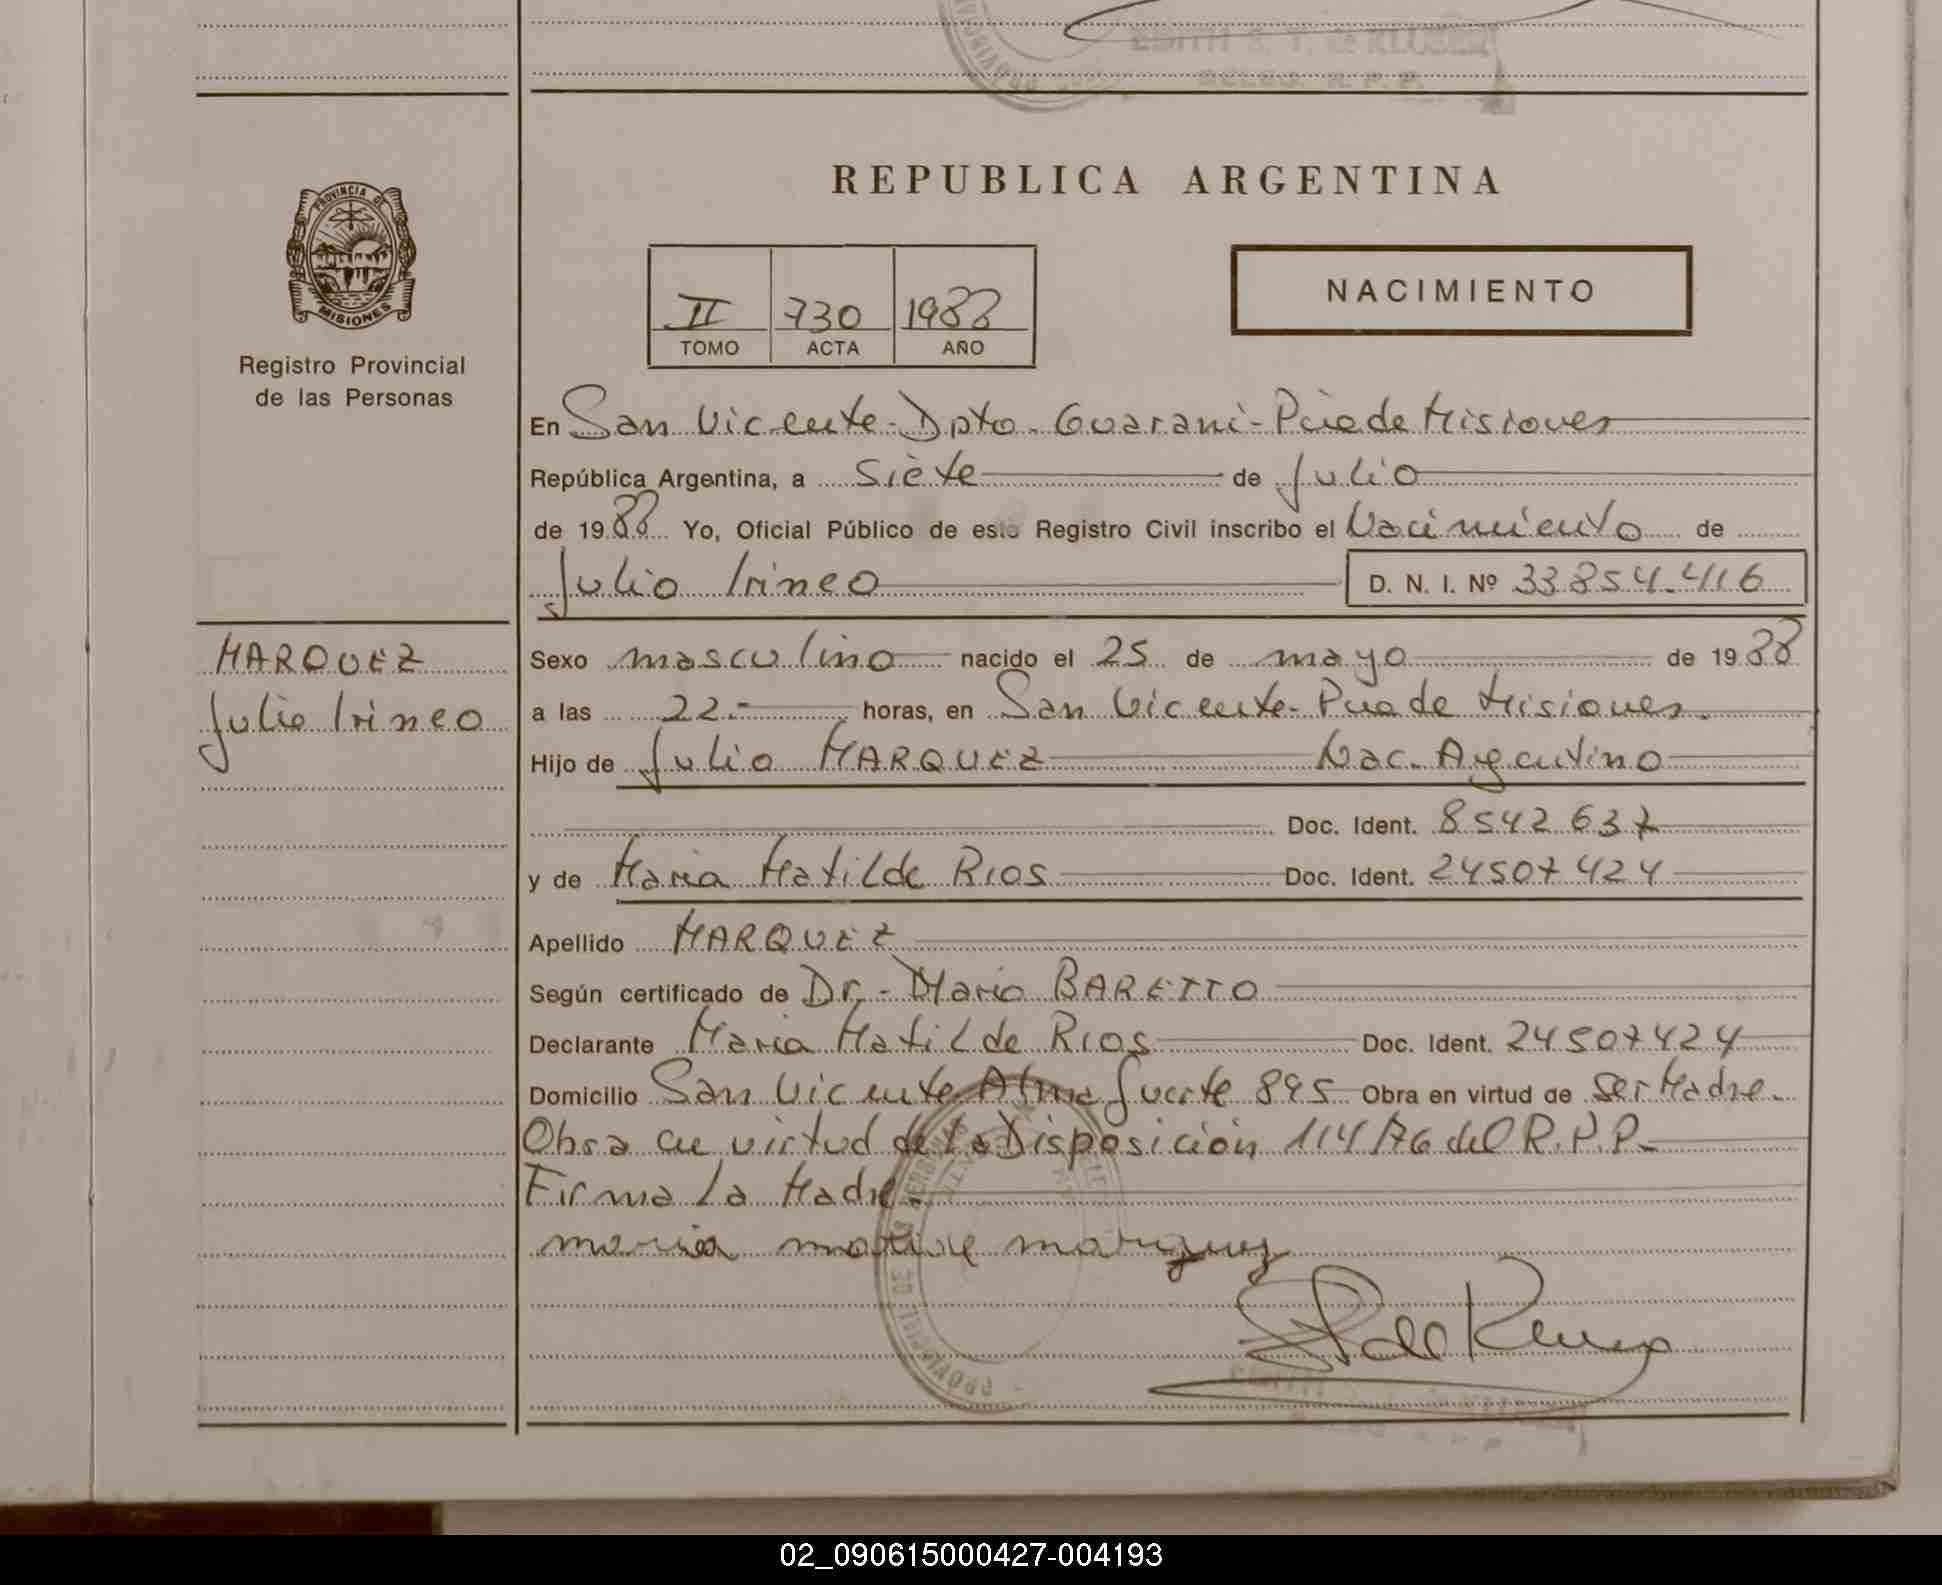 EDITH S. T. de KLUSER
DELEG. R. P. P.
REPUBLICA ARGENTINA
PROVINCIA DE
MISIONES
Registro Provincial
de las Personas
II 730 1988
TOMO ACTA AÑO
NACIMIENTO
En San Vicente - Dpto. Guarani - Pcia de Misiones
República Argentina, a siete de Julio
de 1988 Yo, Oficial Público de este Registro Civil inscribo el Nacimiento de
Julio Irineo D. N. I. Nº 33.854.416
MARQUEZ
Julio Irineo
Sexo masculino nacido el 25 de mayo de 1988
a las 22.- horas, en San Vicente - Pcia de Misiones.
Hijo de Julio MARQUEZ Nac. Argentino
Doc. Ident. 8542637
y de Maria Matilde RIOS Doc. Ident. 24507424
Apellido MARQUEZ
Según certificado de Dr. - Mario BARETTO
Declarante Maria Matilde RIOS Doc. Ident. 24507424
Domicilio San Vicente Almafuerte 895 Obra en virtud de ser Madre.
Obra en virtud de la Disposición 114/76 del R.P.P.-
Firma la Madre.
maria marquez
02_090615000427-004193